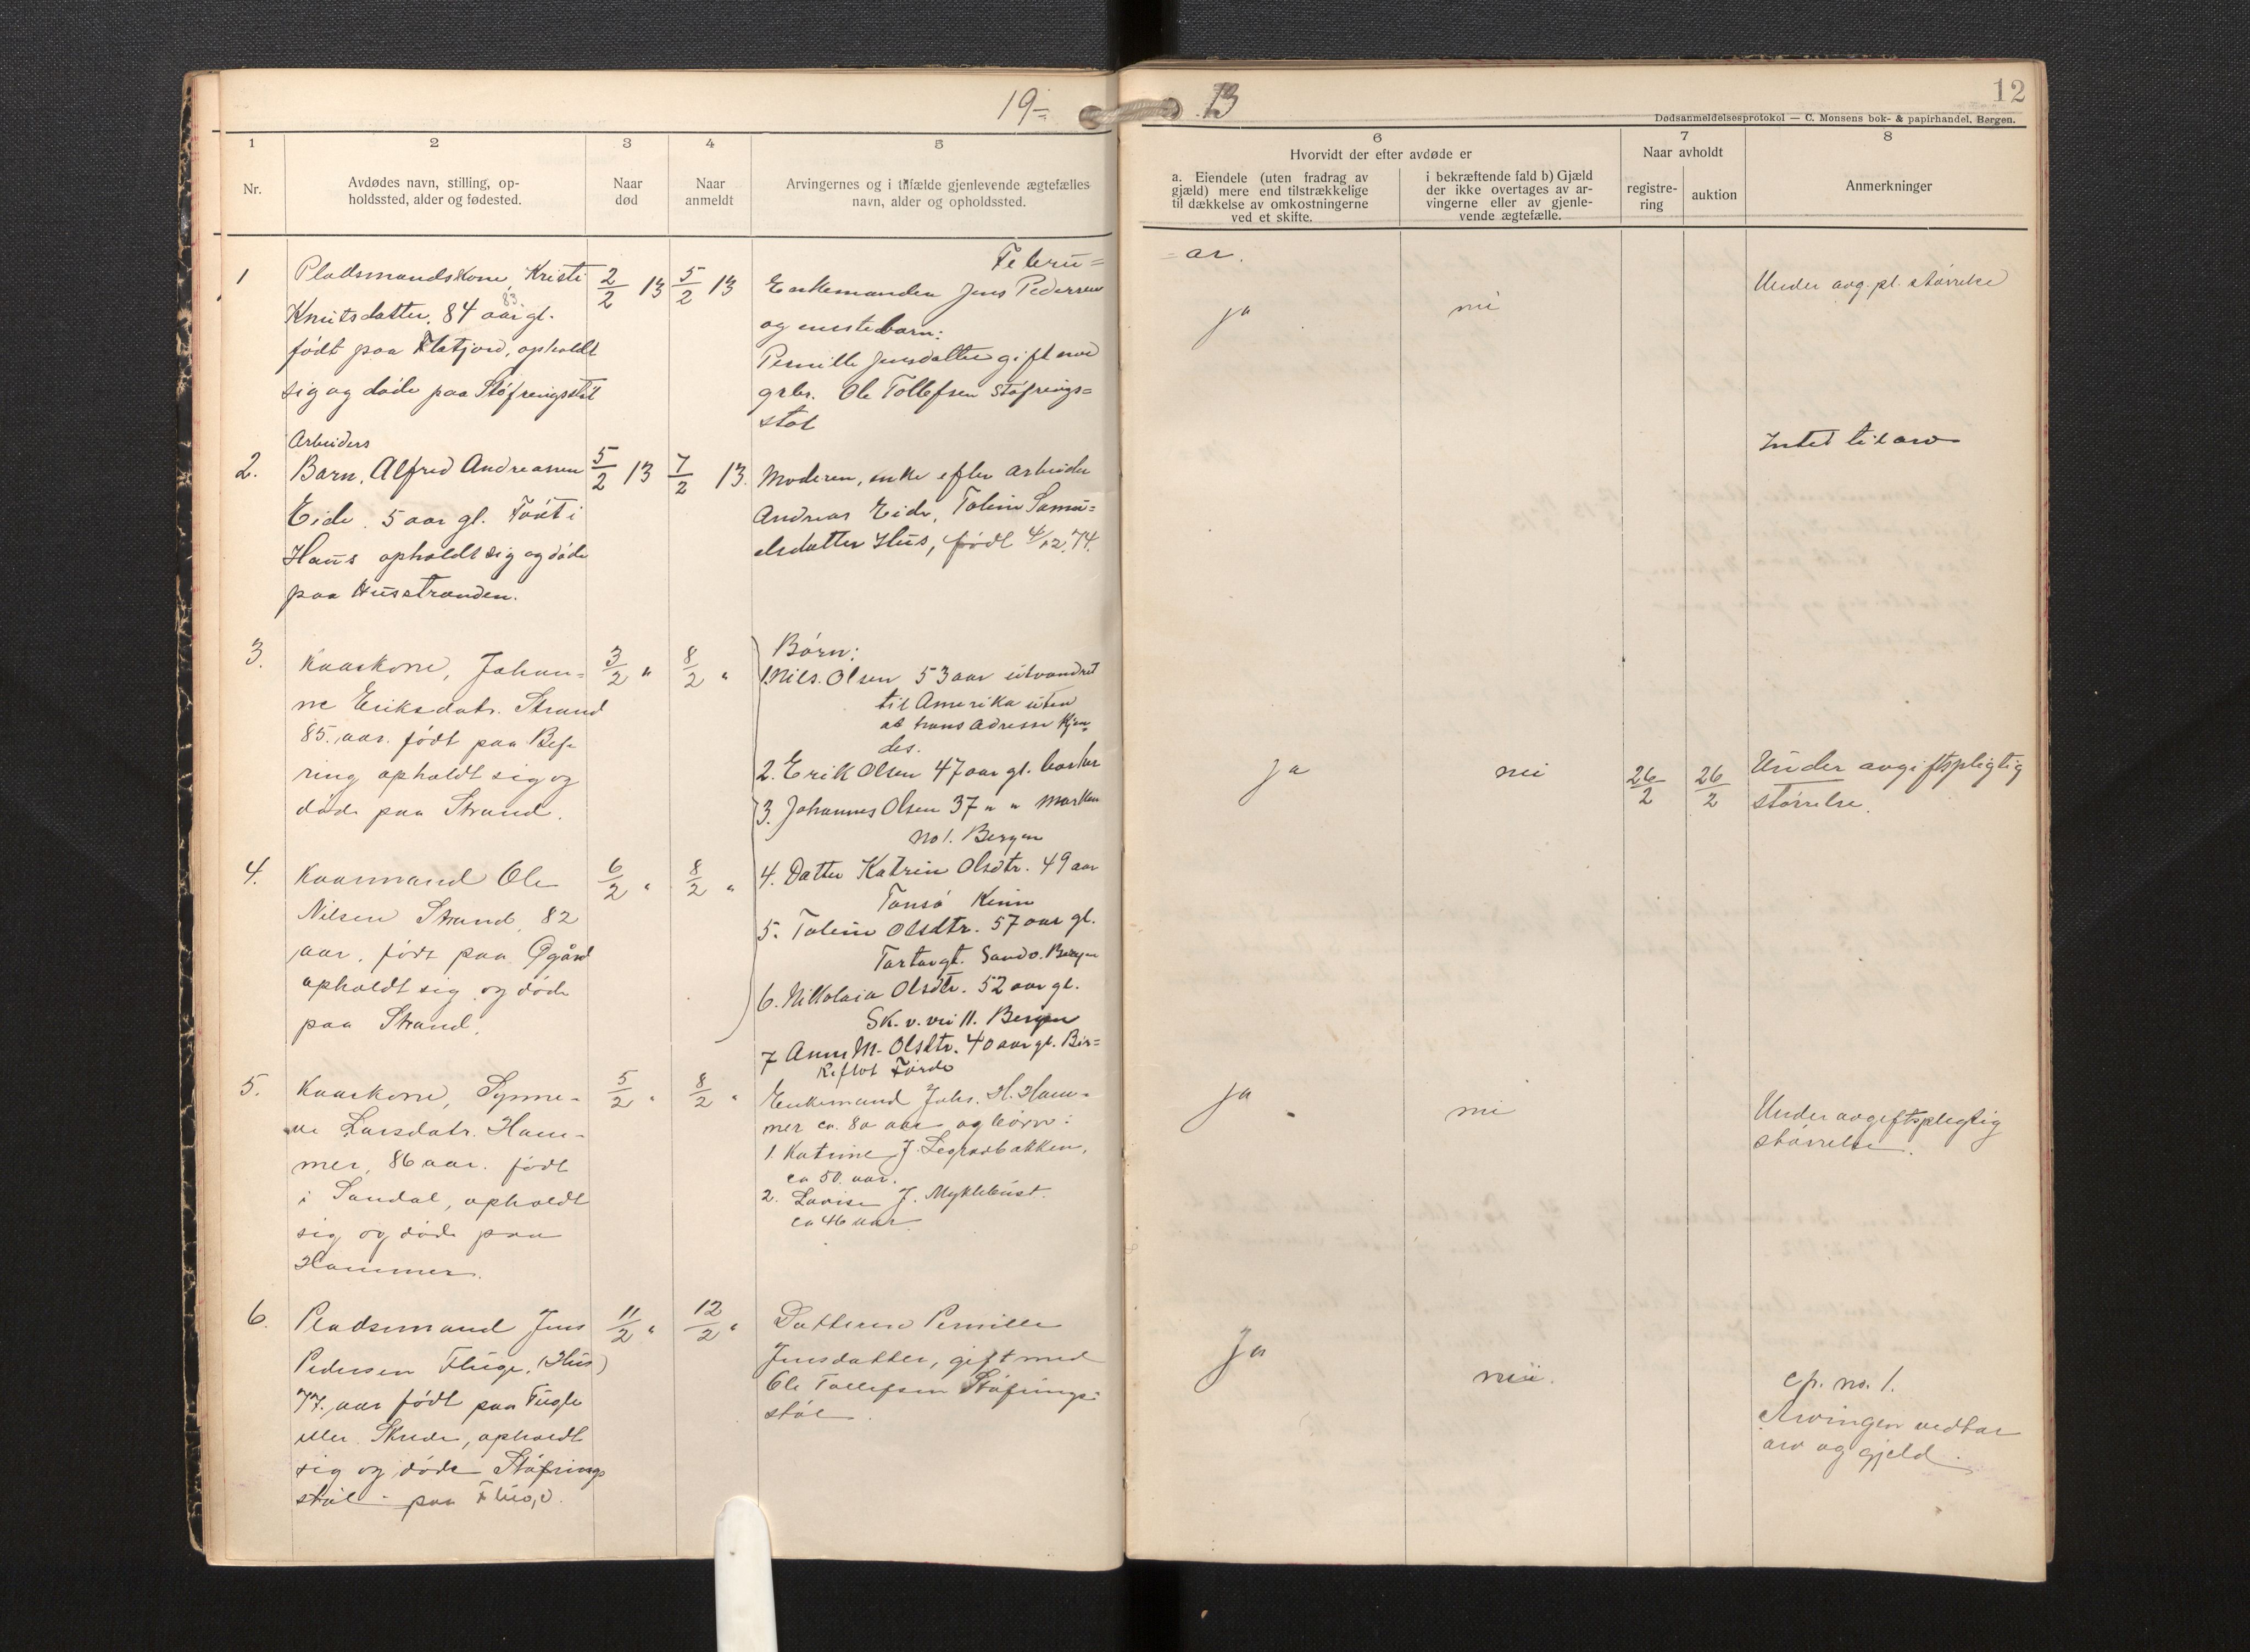 19-
13
12
Dødsanmeldelsesprotokol — C. Monsens bok- & papirhandel, Bergen.
1
2
3
4
5
6
7
8
Nr.
Avdødes navn, stilling, op-
holdssted, alder og fødested.
Naar
død
Naar
anmeldt
Arvingernes og i tilfælde gjenlevende ægtefælles
navn, alder og opholdssted.
Hvorvidt der efter avdøde er
a. Eiendele (uten fradrag av
gjæld) mere end tilstrækkelige
til dækkelse av omkostningerne
ved et skifte.
i bekræftende fald b) Gjæld
der ikke overtages av ar-
vingerne eller av gjenle-
vende ægtefælle.
Naar avholdt
registre-
ring
auktion
Anmerkninger
Febru=
=ar.
1
Pladsmandskone, Kristi
Knutsdatter, 84 aar gl.
83.
født paa Flatjord, opholdt
sig og døde paa Støfringsstøl
2/2 13
5/2 13
Enkemanden Jens Pedersen
og eneste barn:
Pernille Jensdatter gift med
grbr. Ole Tollefsen Støfrings=
støl
ja
nei
Under avg.pl. størrelse
2.
Arbeiders
Barn, Alfred Andreassen
Eide. 5 aar gl. Født i
Haus opholdt sig og døde
paa Husstranden.
5/2 13
7/2 13.
Moderen, enke efter arbeider
Andreas Eide, Taline Samu=
elsdatter Hus, født 4/12.74.
Intet til arv
3.
Kaarkone, Johan=
ne Eriksdatr. Strand
85. aar. født paa Bef=
ring opholdt sig og
døde paa Strand.
3/2 "
8/2 "
Børn:
1. Nils. Olsen 53 aar utvandret
til Amerika uten
at hans adresse kjen=
des.
2. Erik Olsen 47 aar gl.
3. Johannes Olsen 37 " " Marken
No 1. Bergen
4. Datter Katrin Olsdtr. 49 aar
Tansø Kinn
5. Taline Olsdtr. 57 aar gl.
Sandv. Bergen
6. Nikolaia Olsdtr. 52 aar gl.
Sk. v. vei 11. Bergen
7 Anne M. Olsdtr. 40 aar gl. Bir=
keflot Førde
ja
nei
26/2
26/2
Under avgiftspligtig
størrelse.
4.
Kaarmand Ole
Nilsen Strand, 82
aar, født paa Øgård
opholdt sig og døde
paa Strand.
6/2 "
8/2 "
5.
Kaarkone, Synne-
ve Larsdatr. Ham-
mer, 86 aar. født
i Sandal, opholdt
sig og døde paa
Hammer.
5/2 "
8/2 "
Enkemand Johs. H. Ham=
mer ca. 80 aar og børn:
1. Katrine J. Legradbakken,
ca 50. aar.
2. Lovise J. Myklebust.
ca 46 aar
ja
nei
Under avgiftspligtig
størrelse.
6.
Pladsmand Jens
Pedersen Fluge. (Hus)
77. aar født paa Fugle
eller Skrede, opholdt
sig og døde Støfrings
støl - paa
11/2 "
12/2 "
Datteren Pernille
Jensdatter, gift med
Ole Tollefsen Støfrings=
støl.
Ja
nei.
cfr. no. 1.
Arvingen vedtar
arv og gjeld.